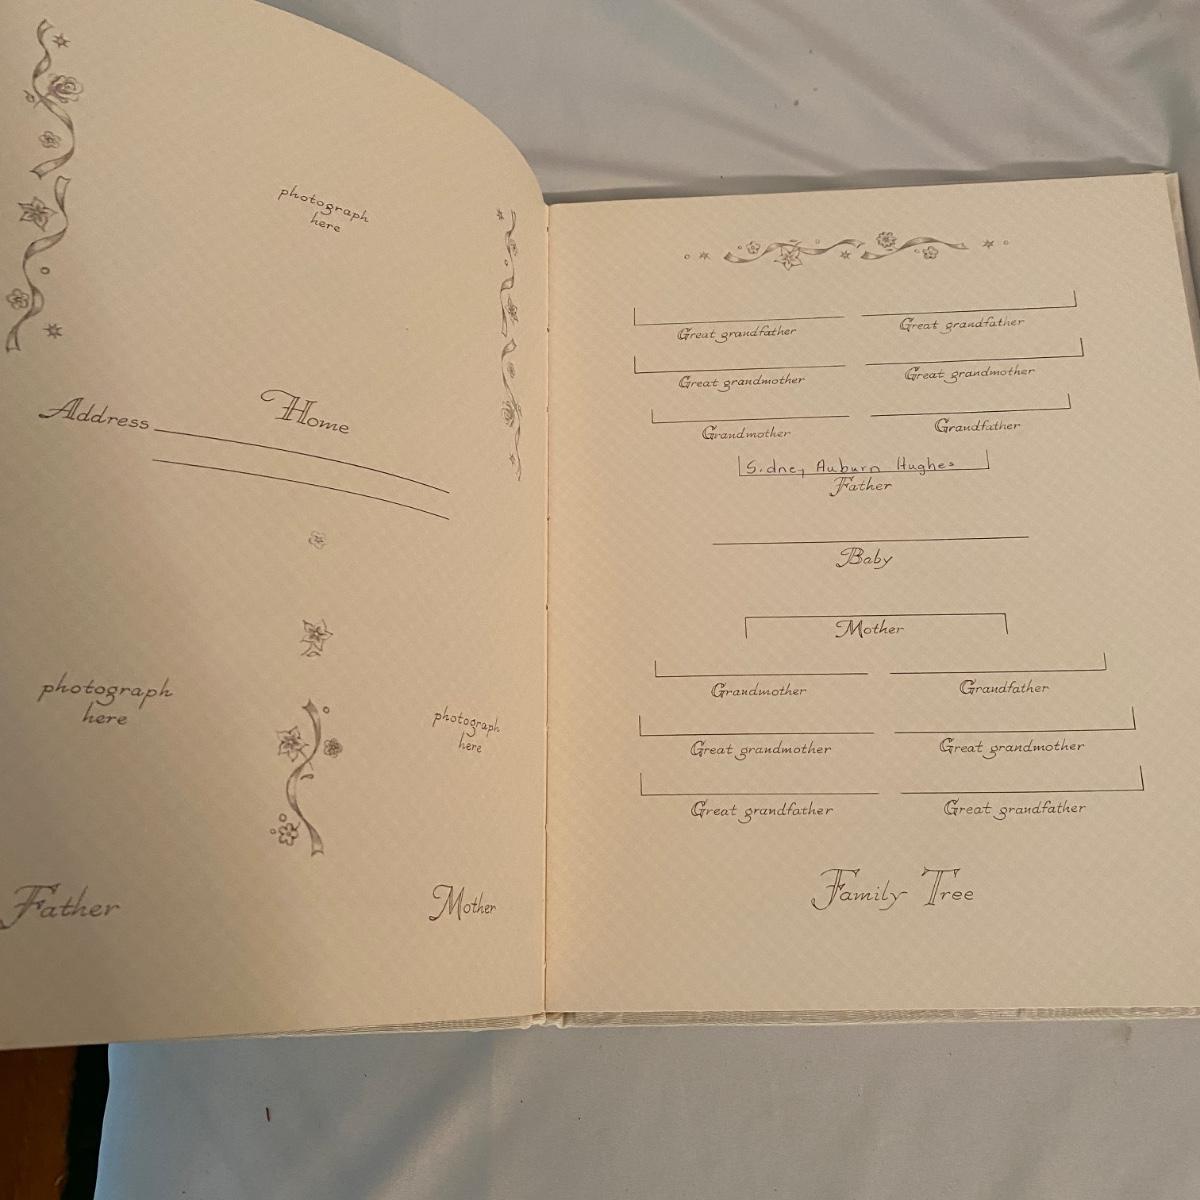 photograph
here
Home
Address
photograph
here
photograph
here
Father
Mother
Great grandfather
Great grandfather
Great grandmother
Great grandmother
Grandmother
Grandfather
Sidney Auburn Hughes
Father
Baby
Mother
Grandmother
Grandfather
Great grandmother
Great grandmother
Great grandfather
Great grandfather
Family Tree